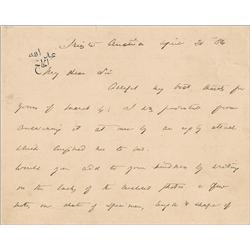 Trieste Austria
My dear Sir
Accept my best thanks for
yours of March 29; I was prevented from
answering it at once by an ugly attack
which confined me to bed.
Would you add to your kindness by writing
on the back of the enclosed photos a few
notes on state of specimen, length & shape of